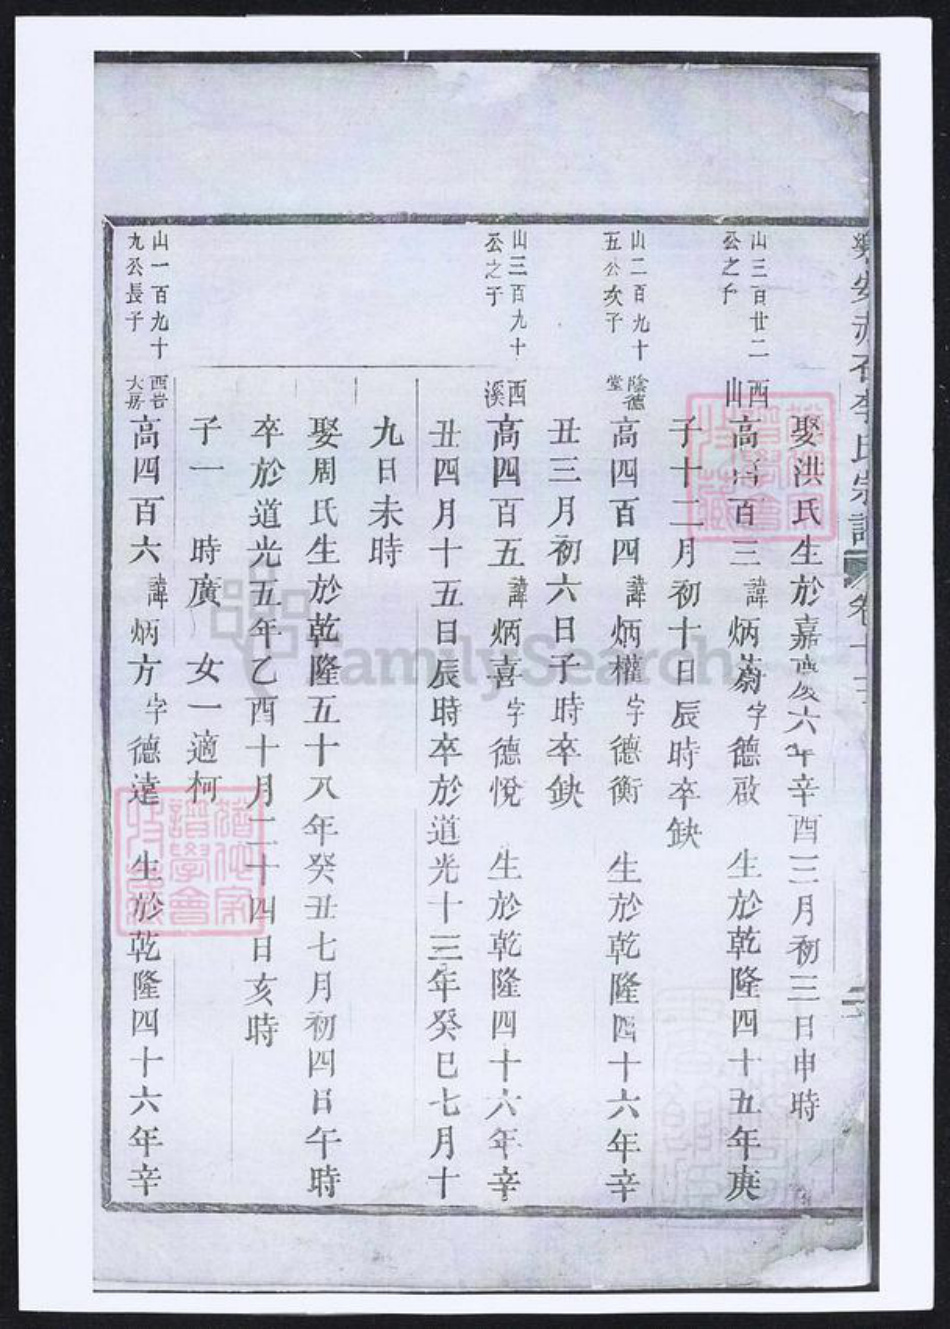 樂安赤石李氏宗譜 卷十三
娶洪氏生於嘉慶六年辛酉三月初三日申時
山三百廿二
公之子
西山
高四百三諱炳蔚字德啟 生於乾隆四十五年庚
子十二月初十日辰時卒缺
山二百九十
五公次子
陰德堂
高四百四諱炳權字德衡 生於乾隆四十六年辛
丑三月初六日子時卒缺
山三百九十
公之子
西溪
高四百五諱炳喜字德悅 生於乾隆四十六年辛
丑四月十五日辰時卒於道光十三年癸巳七月十
九日未時
娶周氏生於乾隆五十八年癸丑七月初四日午時
卒於道光五年乙酉十月二十四日亥時
子一 時廣 女一適柯
山一百九十
九公長子
西岩
大房
高四百六諱炳方字德達 生於乾隆四十六年辛
FamilySearch